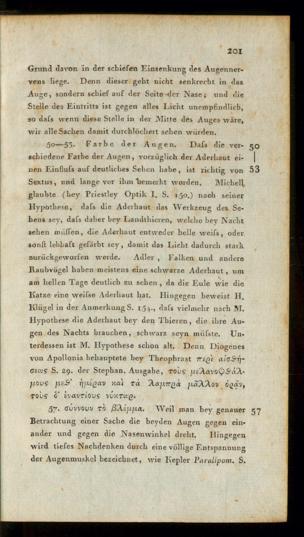 201
Grund davon in der schiefen Einsenkung des Augenner-
vens liege. Denn dieser geht nicht senkrecht in das
Auge, sondern schief auf der Seite der Nase; und die
Stelle des Eintritts ist gegen alles Licht unempfindlich,
so daſs wenn diese Stelle in der Mitte des Auges wäre,
wir alle Sachen damit durchlöchert sehen würden.
50—53. Farbe der Augen. Daſs die ver- 50
schiedene Farbe der Augen, vorzüglich der Aderhaut ei- |
nen Einfluſs auf deutliches Sehen habe, ist richtig von 53
Sextus, und lange vor ihm bemerkt worden. Michell
glaubte (bey Priestley Optik I. S. 150.) nach seiner
Hypothese, daſs die Aderhaut das Werkzeug des Se-
hens sey, daſs daher bey Landthieren, welche bey Nacht
sehen müſsen, die Aderhaut entweder helle weiſs, oder
sonſt lebhaft gefärbt sey, damit das Licht dadurch stark
zurückgeworfen werde. Adler, Falken und andere
Raubvögel haben meistens eine schwarze Aderhaut, um
am hellen Tage deutlich zu sehen, da die Eule wie die
Katze eine weiſse Aderhaut hat. Hingegen beweist H.
Klügel in der Anmerkung S. 154., daſs vielmehr nach M.
Hypothese die Aderhaut bey den Thieren, die ihre Au-
gen des Nachts brauchen, schwarz seyn müſste. Un-
terdessen ist M. Hypothese schon alt. Denn Diogenes
von Apollonia behauptete bey Theophrast περὶ αἰσθή-
σεως S. 29. der Stephan. Ausgabe, τοὺς μελανοφθάλ-
μους μεθ' ἡμέραν καὶ τὰ λαμπρὰ μᾶλλον ὁρᾶν,
τοὺς δ' ἐναντίους νύκτωρ.
57. σύννουν τὸ βλέμμα. Weil man bey genauer 57
Betrachtung einer Sache die beyden Augen gegen ein-
ander und gegen die Nasenwinkel dreht. Hingegen
wird tiefes Nachdenken durch eine völlige Entspannung
der Augenmuskel bezeichnet, wie Kepler Paralipom. S.